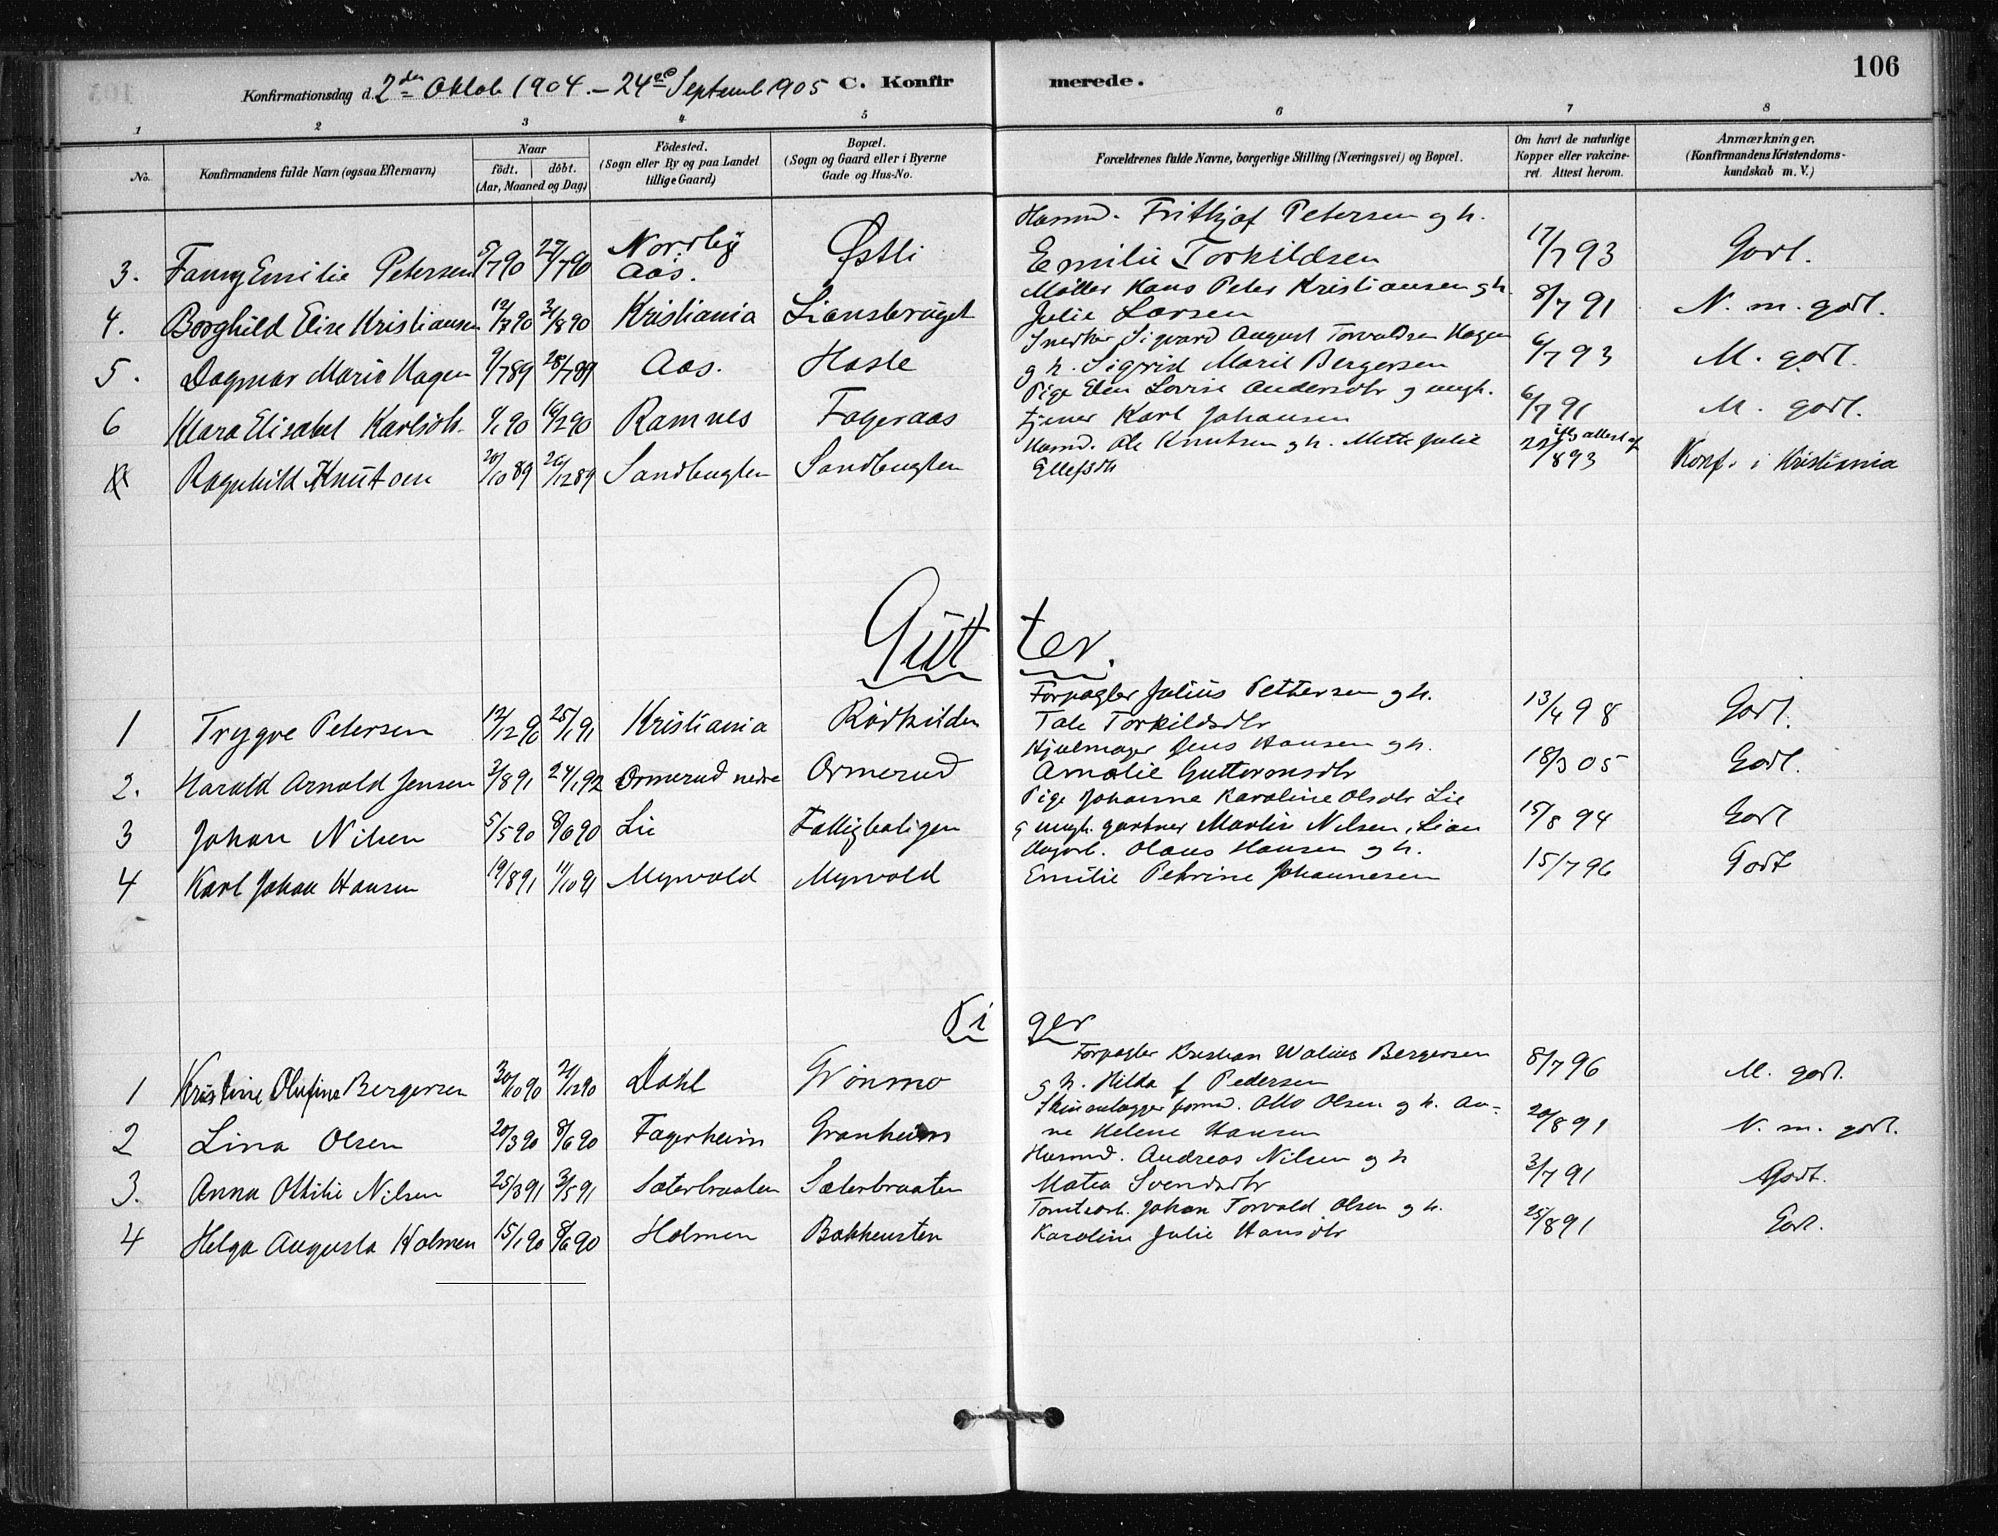 106
Konfirmationsdag d. 2den Oktob 1904. – 24de Septemb 1905 C. Konfirmerede.
1 2 3 4 5 6 7 8
No. Konfirmandens fulde Navn (ogsaa Efternavn) Naar født. døbt. (Aar, Maaned og Dag) Födested. (Sogn eller By og paa Landet tillige Gaard) Bopæl. (Sogn og Gaard eller i Byerne Gade og Hus-No. Forældrenes fulde Navne, borgerlige Stilling (Næringsvei) og Bopæl. Om havt de naturlige Kopper eller vakcineret. Attest herom. Anmærkninger, (Konfirmandens Kristendomskundskab m. V.)
Husmd. Frithjof Petersen og h.
3. Fanny Emilie Petersen 5/7 90 27/7 90 Nordby Aas. Østli Emilie Torkildsen 17/7 93 Godt.
Møller Hans Peter Kristiansen og h.
4. Borghild Elise Kristiansen 12/7 90 31/8 90 Kristiania Liansbruget Julie Larsen 8/7 91 N. m. godt.
Snedker Sigvard August Torvaldsen Hagen
5. Dagmar Marie Hagen 9/7 89 28/7 89 Aas. Hasle og h. Sigrid Marie Bergersen 6/7 93 M. godt.
Pige Elen Lovise Andersdtr og ungk.
6 Klara Elisabet Karlsdtr. 9/1 90 16/2 90 Ramnes Fageraas tjener Karl Johansen 6/7 91 M. godt.
Husmd. Ole Knutsen og h. Mette Julie
Ragnhild Knutsen 20/10 89 26/12 89 Sandbugten Sandbugten Ellefsdtr 22/8 93 Konf. i Kristiania
Gutter.
Forpagter Julius Pettersen og h.
1 Trygve Petersen 12/12 90 25/1 91 Kristiania Rödkilden Tale Torkildsdtr 13/4 98 Godt.
Hjulmager Jens Hansen og h.
2. Harald Arnold Jensen 3/8 91 24/1 92 Ormerud nedre Ormerud Amalie Guttormsdtr 18/3 05 Godt.
Pige Johanne Karoline Olsdtr Lie
3 Johan Nilsen 5/5 90 8/6 90 Lie Fattigboligen og ungk. gartner Martin Nilsen, Lian 15/8 94 Godt
Olaus Hansen og h.
4 Karl Johan Hansen 19/8 91 11/10 91 Myrvold Myrvold Emilie Petrine Johannesen 15/7 96 Godt
Piger
Forpagter Kristian Walius Bergersen
1 Kristine Olufine Bergersen 30/10 90 21/12 90 Dahl Grönmo og h. Hilda f Pedersen 8/7 96 M. godt.
Skinnelægger formd. Otto Olsen og h. An-
2 Lina Olsen 20/3 90 8/6 90 Fagerheim Granheim ne Helene Hansen 20/8 91 N. m. godt.
Husmd. Andreas Nilsen og h
3. Anna Othilie Nilsen 25/3 91 3/5 91 Sæterbraaten Sæterbraaten Matea Svendsdtr 3/7 91 Godt.
Tomtearb. Johan Torvald Olsen og h.
4 Helga Augusta Holmen 15/1 90 8/6 90 Holmen Bakkensten Karoline Julie Hansdtr 25/8 91 Godt.